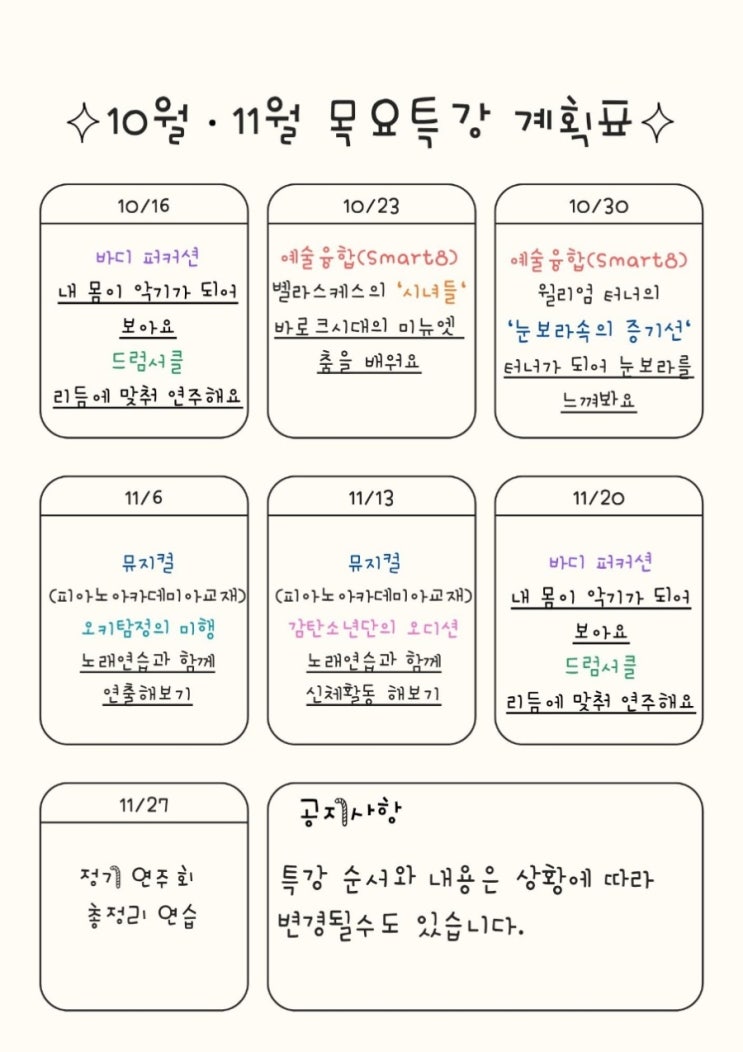 10월 · 11월 목요특강 계획표
10/16
바디 퍼커션
내 몸이 악기가 되어
보아요
드럼서클
리듬에 맞춰 연주해요
10/23
예술융합(Smart8)
벨라스케스의 '시녀들'
바로크시대의 미뉴엣
춤을 배워요
10/30
예술융합(Smart8)
윌리엄 터너의
'눈보라속의 증기선'
터너가 되어 눈보라를
느껴봐요
11/6
뮤지컬
(피아노아카데미아교재)
오키탐정의 미행
노래연습과 함께
연출해보기
11/13
뮤지컬
(피아노아카데미아교재)
감탄소년단의 오디션
노래연습과 함께
신체활동 해보기
11/20
바디 퍼커션
내 몸이 악기가 되어
보아요
드럼서클
리듬에 맞춰 연주해요
11/27
정기 연주회
총정리 연습
공지사항
특강 순서와 내용은 상황에 따라
변경될수도 있습니다.